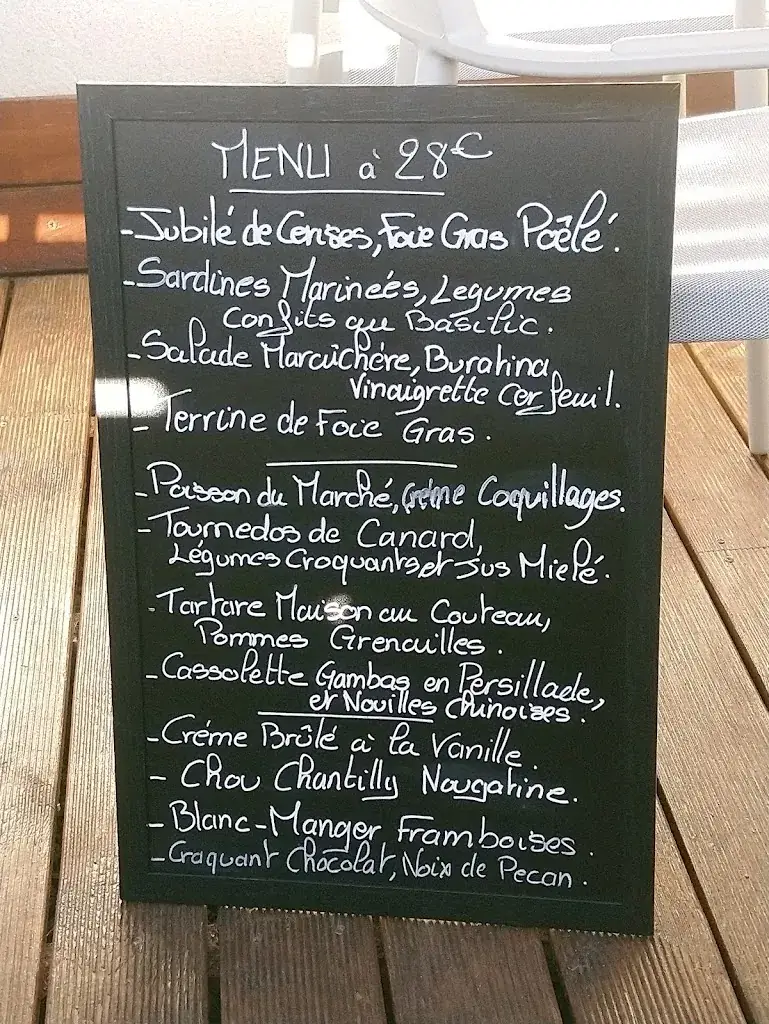 MENU à 28€
-Jubilé de Cerises, Foie Gras Poêlé.
-Sardines Marineés, Legumes
Confits au Basilic.
-Salade Maraîchère, Buratina
Vinaigrette Cerfeuil.
- Terrine de Foie Gras.
-Poisson du Marché, Crème Coquillages.
-Tournedos de Canard,
Légumes Croquants et Jus Mielé.
-Tartare Maison au Couteau,
Pommes Grenailles.
-Cassolette Gambas en Persillade,
et Nouilles Chinoises.
-Créme Brûlé à la Vanille.
- Chou Chantilly Nougatine.
-Blanc-Manger Framboises.
-Craquant Chocolat, Noix de Pecan.